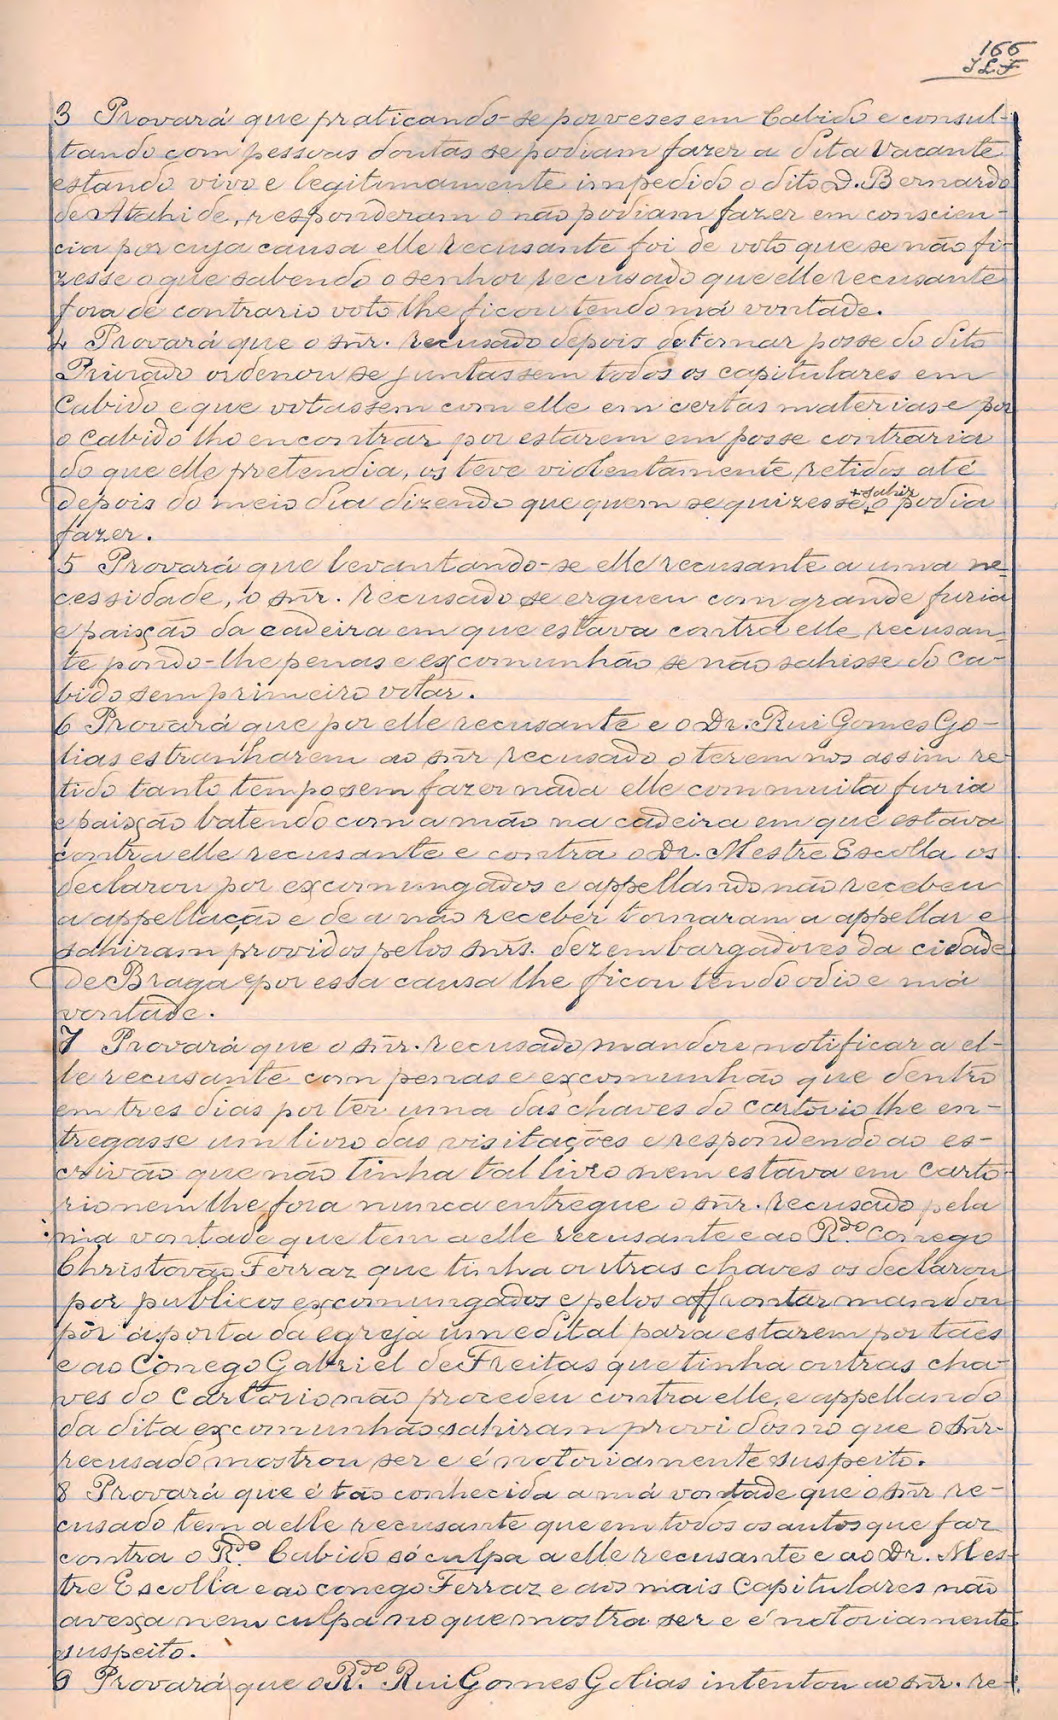 166
J L F
3 Provará que praticando-se por veses em Cabido e consul-
tando com pessoas doutas se podiam fazer a dita Vacante
estando vivo e legitimamente impedido o dito D. Bernardo
de Atahide, responderam o não podiam fazer em conscien-
cia por cuja causa elle recusante foi de voto que se não fi-
zesse o que sabendo o senhor recusado que elle recusante
fora de contrario voto lhe ficou tendo má vontade.
4 Provará que o snr. recusado depois de tomar posse do dito
Priorado ordenou se juntassem todos os capitulares em
Cabido e que votassem com elle em certas materias e por
o Cabido lho encontrar por estarem em posse contraria
do que elle pretendia, os teve violentamente retidos até
depois do meio dia dizendo que quem se quizesse +sahir+ o podia
fazer.
5 Provará que levantando-se elle recusante a uma ne-
cessidade, o snr. recusado se ergueu com grande furia
e paixção da cadeira em que estava contra elle recusan-
te pondo-lhe penas e excomunhão se não sahisse do Ca-
bido sem primeiro votar.
6 Provará que por elle recusante e o Dr. Rui Gomes Go-
lias estranharem ao snr recusado o terem nos assim re-
tido tanto tempo sem fazer nada elle com muita furia
e paixção batendo com a mão na cadeira em que estava
contra elle recusante e contra o Dr. Mestre Escolla os
declarou por excomungados e appellando não recebeu
a appellação e de a não receber tornaram a appellar e
sahiram providos pelos snrs. dezembargadores da cidade
de Braga e por essa causa lhe ficou tendo odio e má
vontade.
7 Provará que o snr. recusado mandou notificar a el-
le recusante com penas e excomunhão que dentro
em tres dias por ter uma das chaves do cartorio lhe en-
tregasse um livro das visitações e respondendo ao es-
crivão que não tinha tal livro nem estava em carto-
rio nem lhe fora nunca entregue o snr. recusado pela
má vontade que tem a elle recusante e ao R.do Conego
Christovão Ferraz que tinha outras chaves os declarou
por publicos excomungados e pelos affrontar mandou
pôr á porta da egreja um edital para estarem por taes
e ao Conego Gabriel de Freitas que tinha outras cha-
ves do Cartorio não procedeu contra elle, e appellando
da dita excomunhão sahiram providos no que o snr.
recusado mostrou ser e é notoriamente suspeito.
8 Provará que é tão conhecida a má vontade que o snr re-
cusado tem a elle recusante que em todos os autos que faz
contra o R.do Cabido só culpa a elle recusante e ao Dr. Mes-
tre Escolla e ao conego Ferraz e aos mais Capitulares não
avexa nem culpa no que mostra ser e é notoriamente
suspeito.
9 Provará que o R.do Rui Gomes Golias intentou ao snr. re-